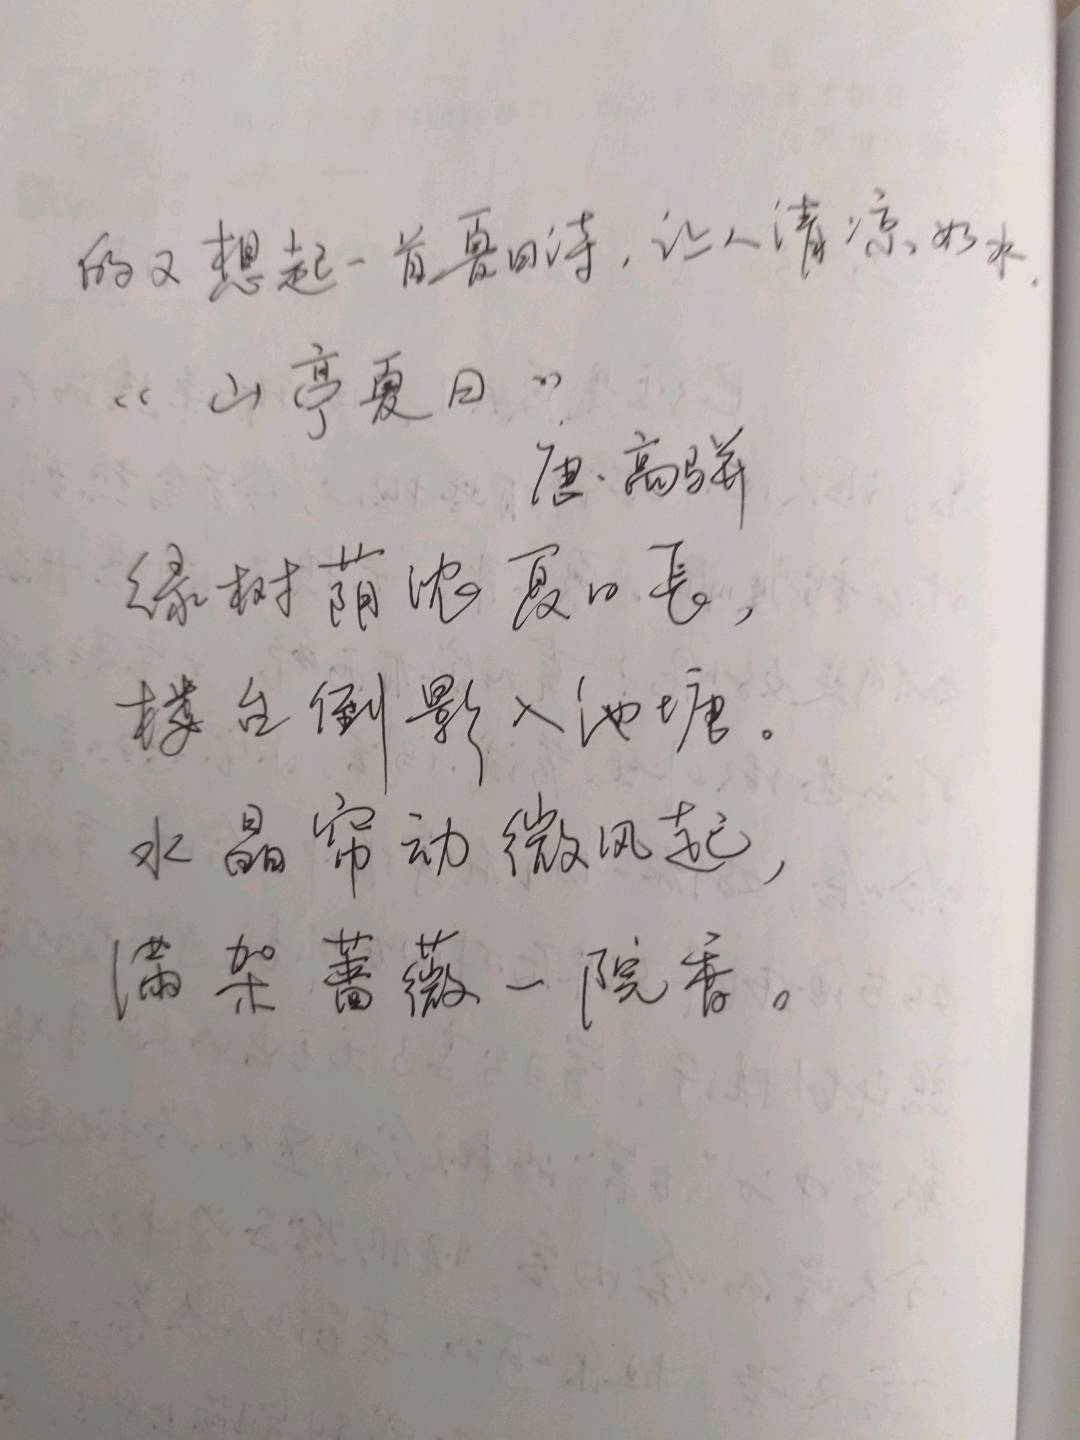 的又想起一首夏日诗，让人清凉如水.
“山亭夏日”
唐·高骈
绿树荫浓夏日長，
楼台倒影入池塘。
水晶帘动微风起，
满架蔷薇一院香。